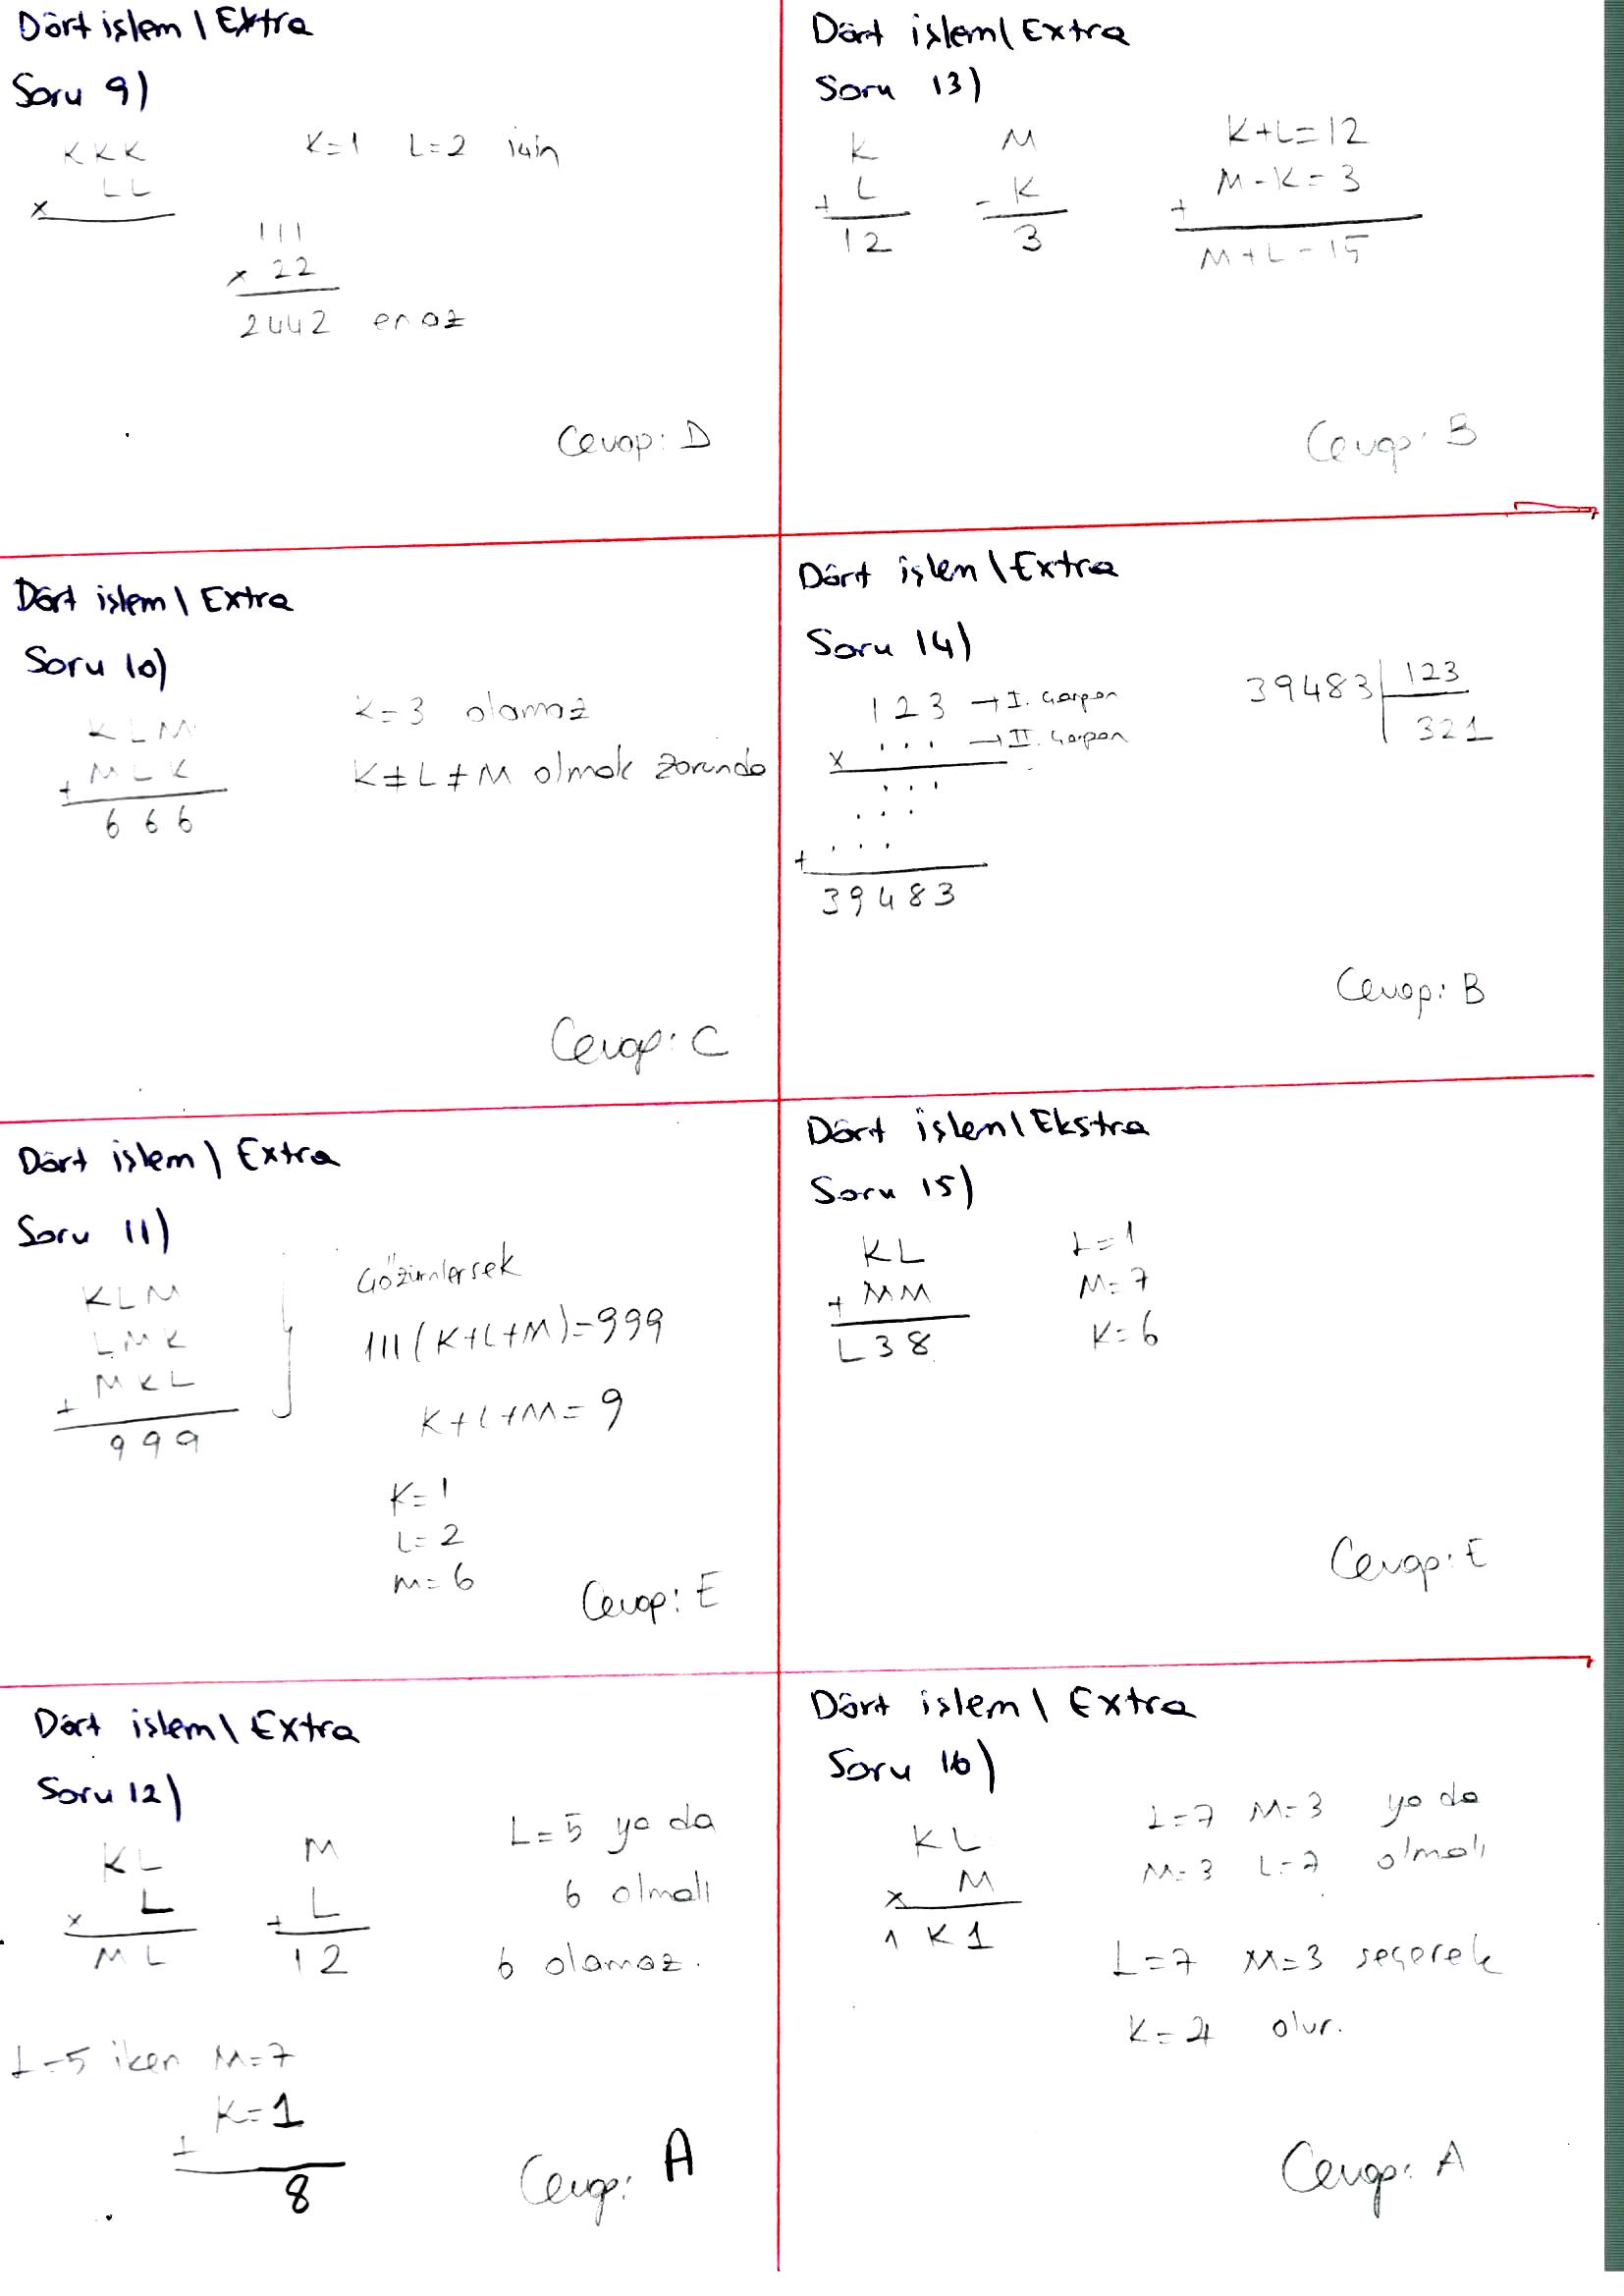 Dört işlem | Extra
Soru 9)
KKK
LL
x
K=1 L=2 için
111
x 22
2442 en az
Cevap: D
Dört işlem | Extra
Soru 10)
KLM
+ MLK
666
K=3 olamaz
K≠L≠M olmak zorunda
Cevap: C
Dört işlem | Extra
Soru 11)
KLM
LMK
+ MKL
999
Çözümlersek
111(K+L+M)=999
K+L+M=9
K=1
L=2
M=6
Cevap: E
Dört işlem | Extra
Soru 12)
KL
x L
ML
M
+ L
12
L=5 ya da
6 olmalı
6 olamaz.
L=5 iken M=7
K=1
+
8
Cevap: A
Dört işlem | Extra
Soru 13)
K
+ L
12
M
- K
3
K+L=12
M-K=3
+
M+L=15
Cevap: B
Dört işlem | Extra
Soru 14)
123 → I. Çarpan
x ... → II. Çarpan
...
...
+ ...
39483
39483 | 123
321
Cevap: B
Dört işlem | Ekstra
Soru 15)
KL
+ MM
L38
L=1
M=7
K=6
Cevap: E
Dört işlem | Extra
Soru 16)
KL
x M
1K1
L=7 M=3 ya da
M=3 L=7 olmalı
L=7 M=3 seçerek
K=4 olur.
Cevap: A